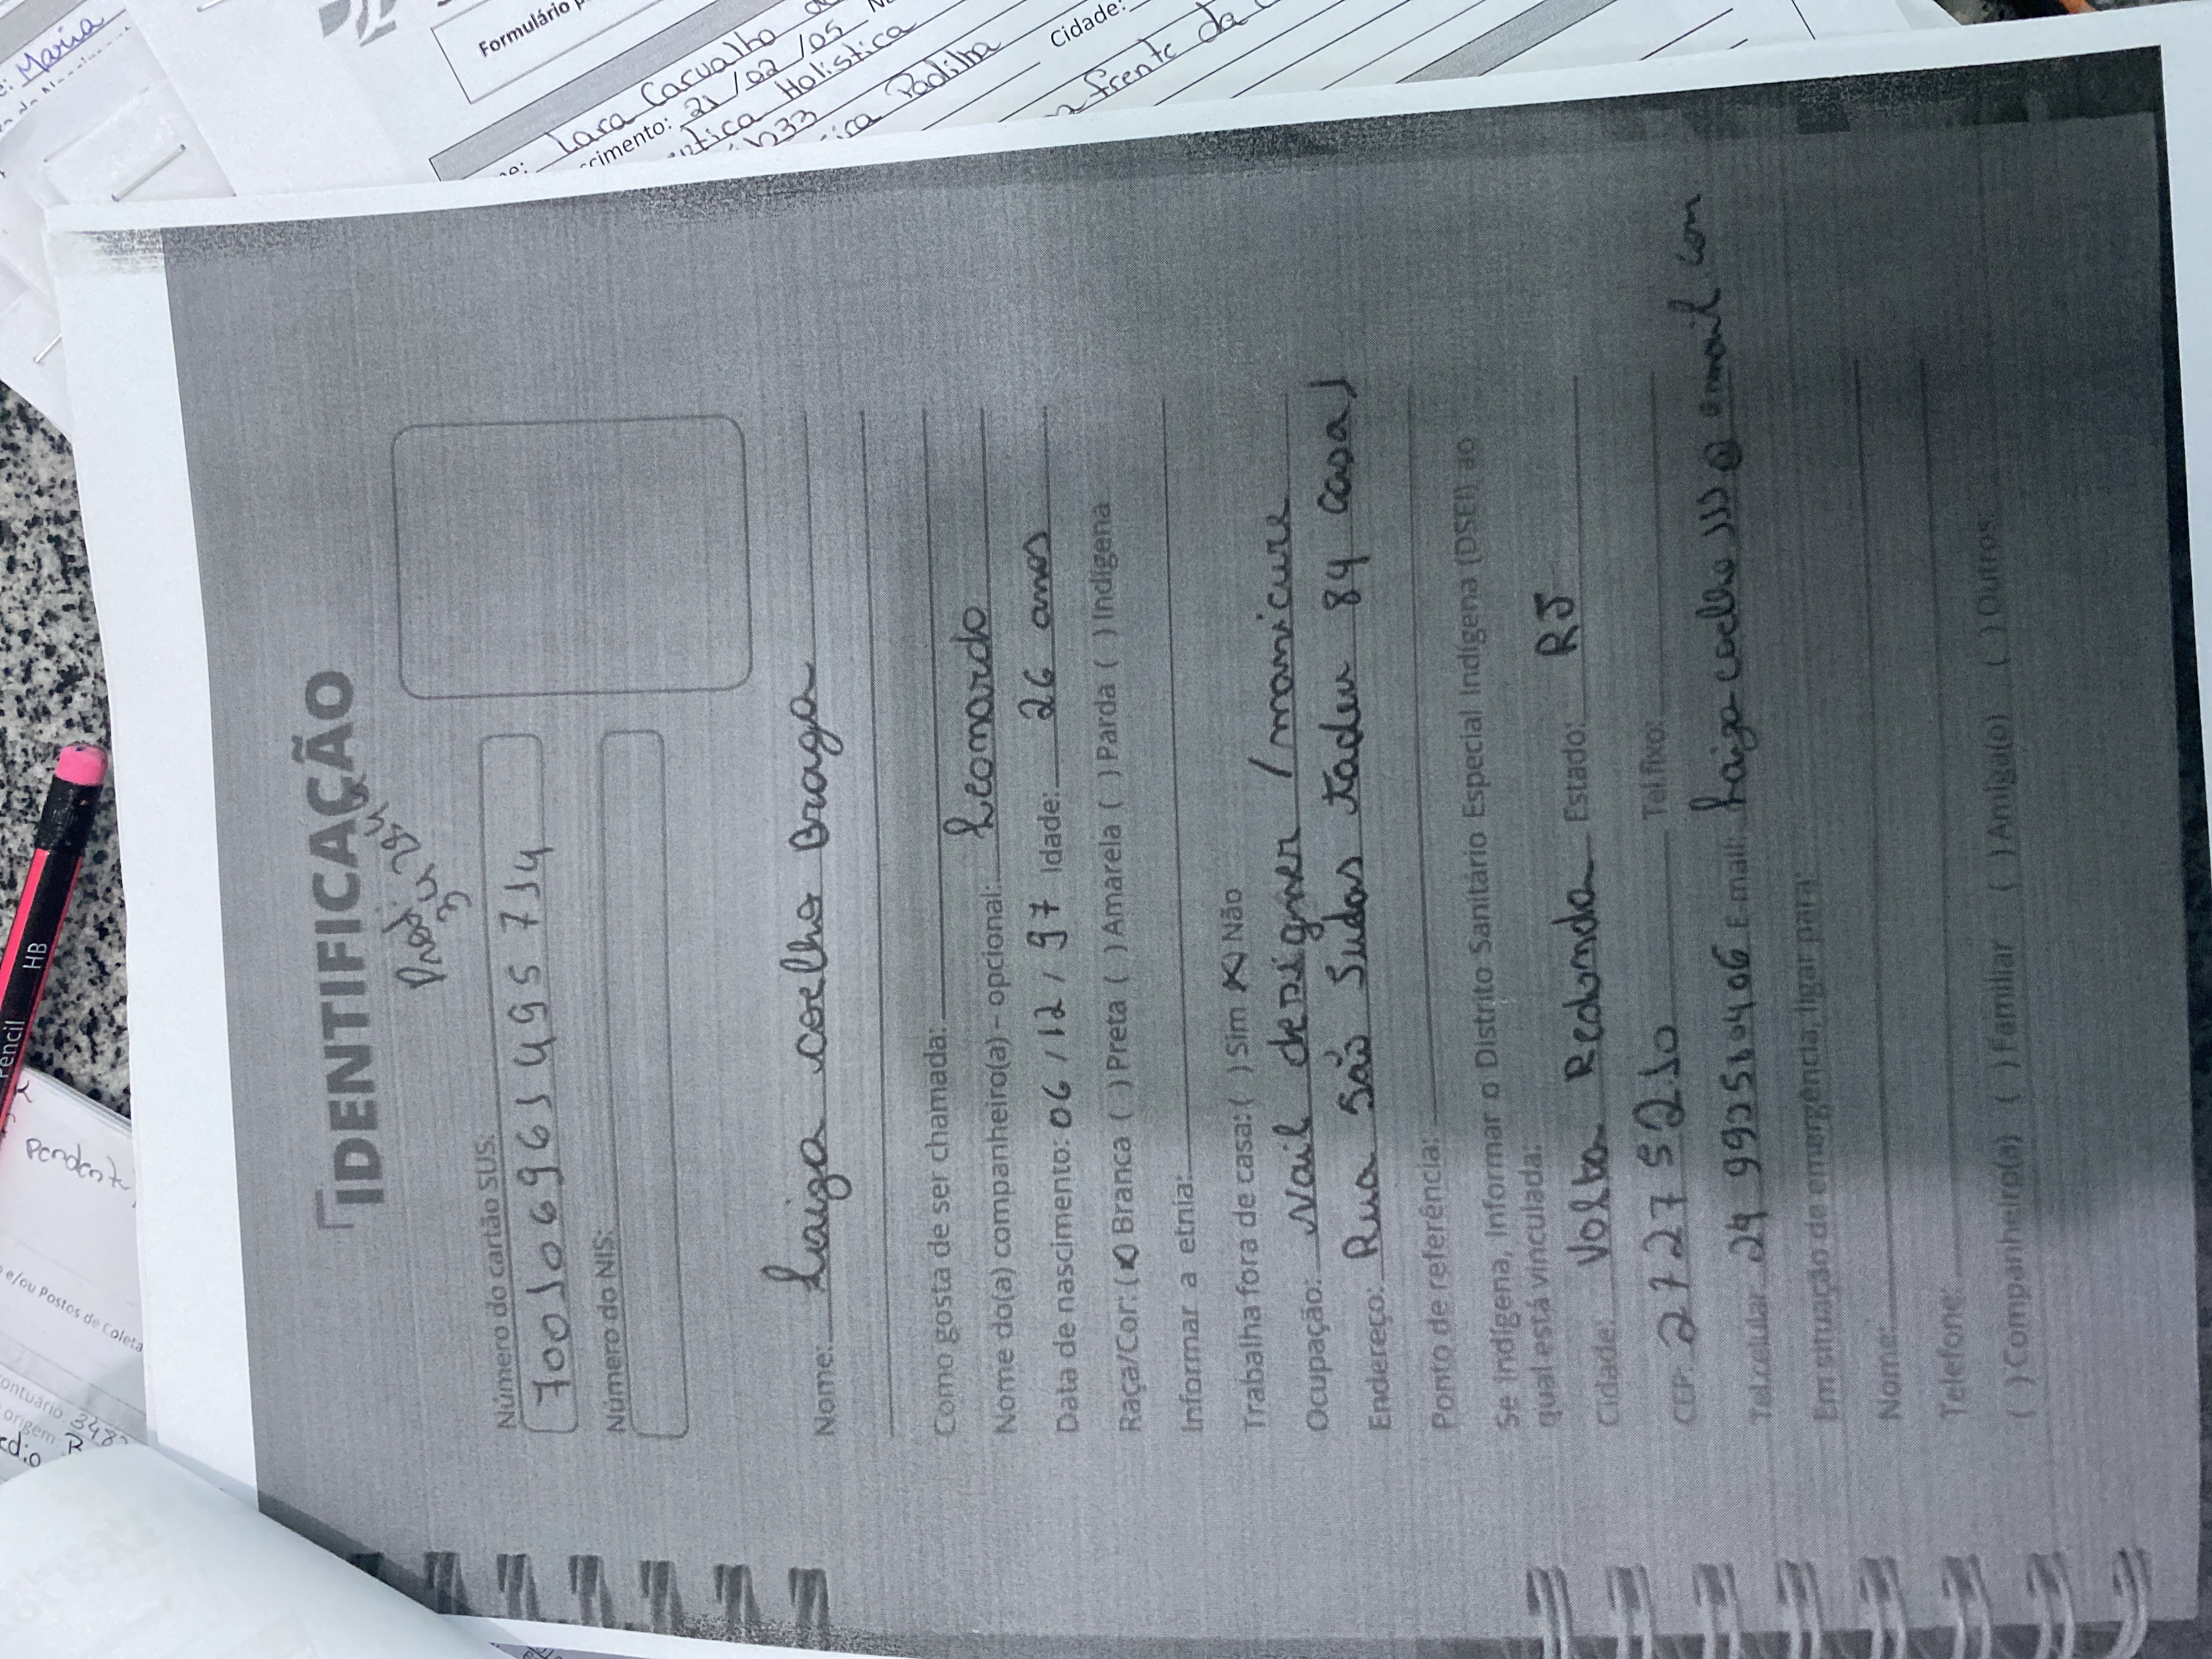 IDENTIFICAÇÃO
Número do cartão SUS:
700 106961495 714
Número do NIS:
Nome: Laiza coelho Braga
Como gosta de ser chamada:
Nome do(a) companheiro(a) – opcional: Leonardo
Data de nascimento: 06 / 12 / 97 Idade: 26 anos
Raça/Cor: (X) Branca ( ) Preta ( ) Amarela ( ) Parda ( ) Indígena
Informar a etnia:
Trabalha fora de casa: ( ) Sim (X) Não
Ocupação: Nail designer / manicure
Endereço: Rua São Judas tadeu 84 casa 1
Ponto de referência:
Se indígena, informar o Distrito Sanitário Especial Indígena (DSEI) ao
qual está vinculada:
Cidade: Volta Redonda Estado: RJ
CEP: 27275210 Tel.fixo:
Tel.celular: 24 992510406 E-mail: Laizacoelho111@gmail.com
Em situação de emergência, ligar para:
Nome:
Telefone:
( ) Companheiro(a) ( ) Familiar ( ) Amigo(a) ( ) Outros
Pencil HB
Maria
Formulário
Lara Carvalho
cimento: 21/02/05
Holística
Padilha
Cidade:
frente da
pendente
e/ou Postos de Coleta
origem: